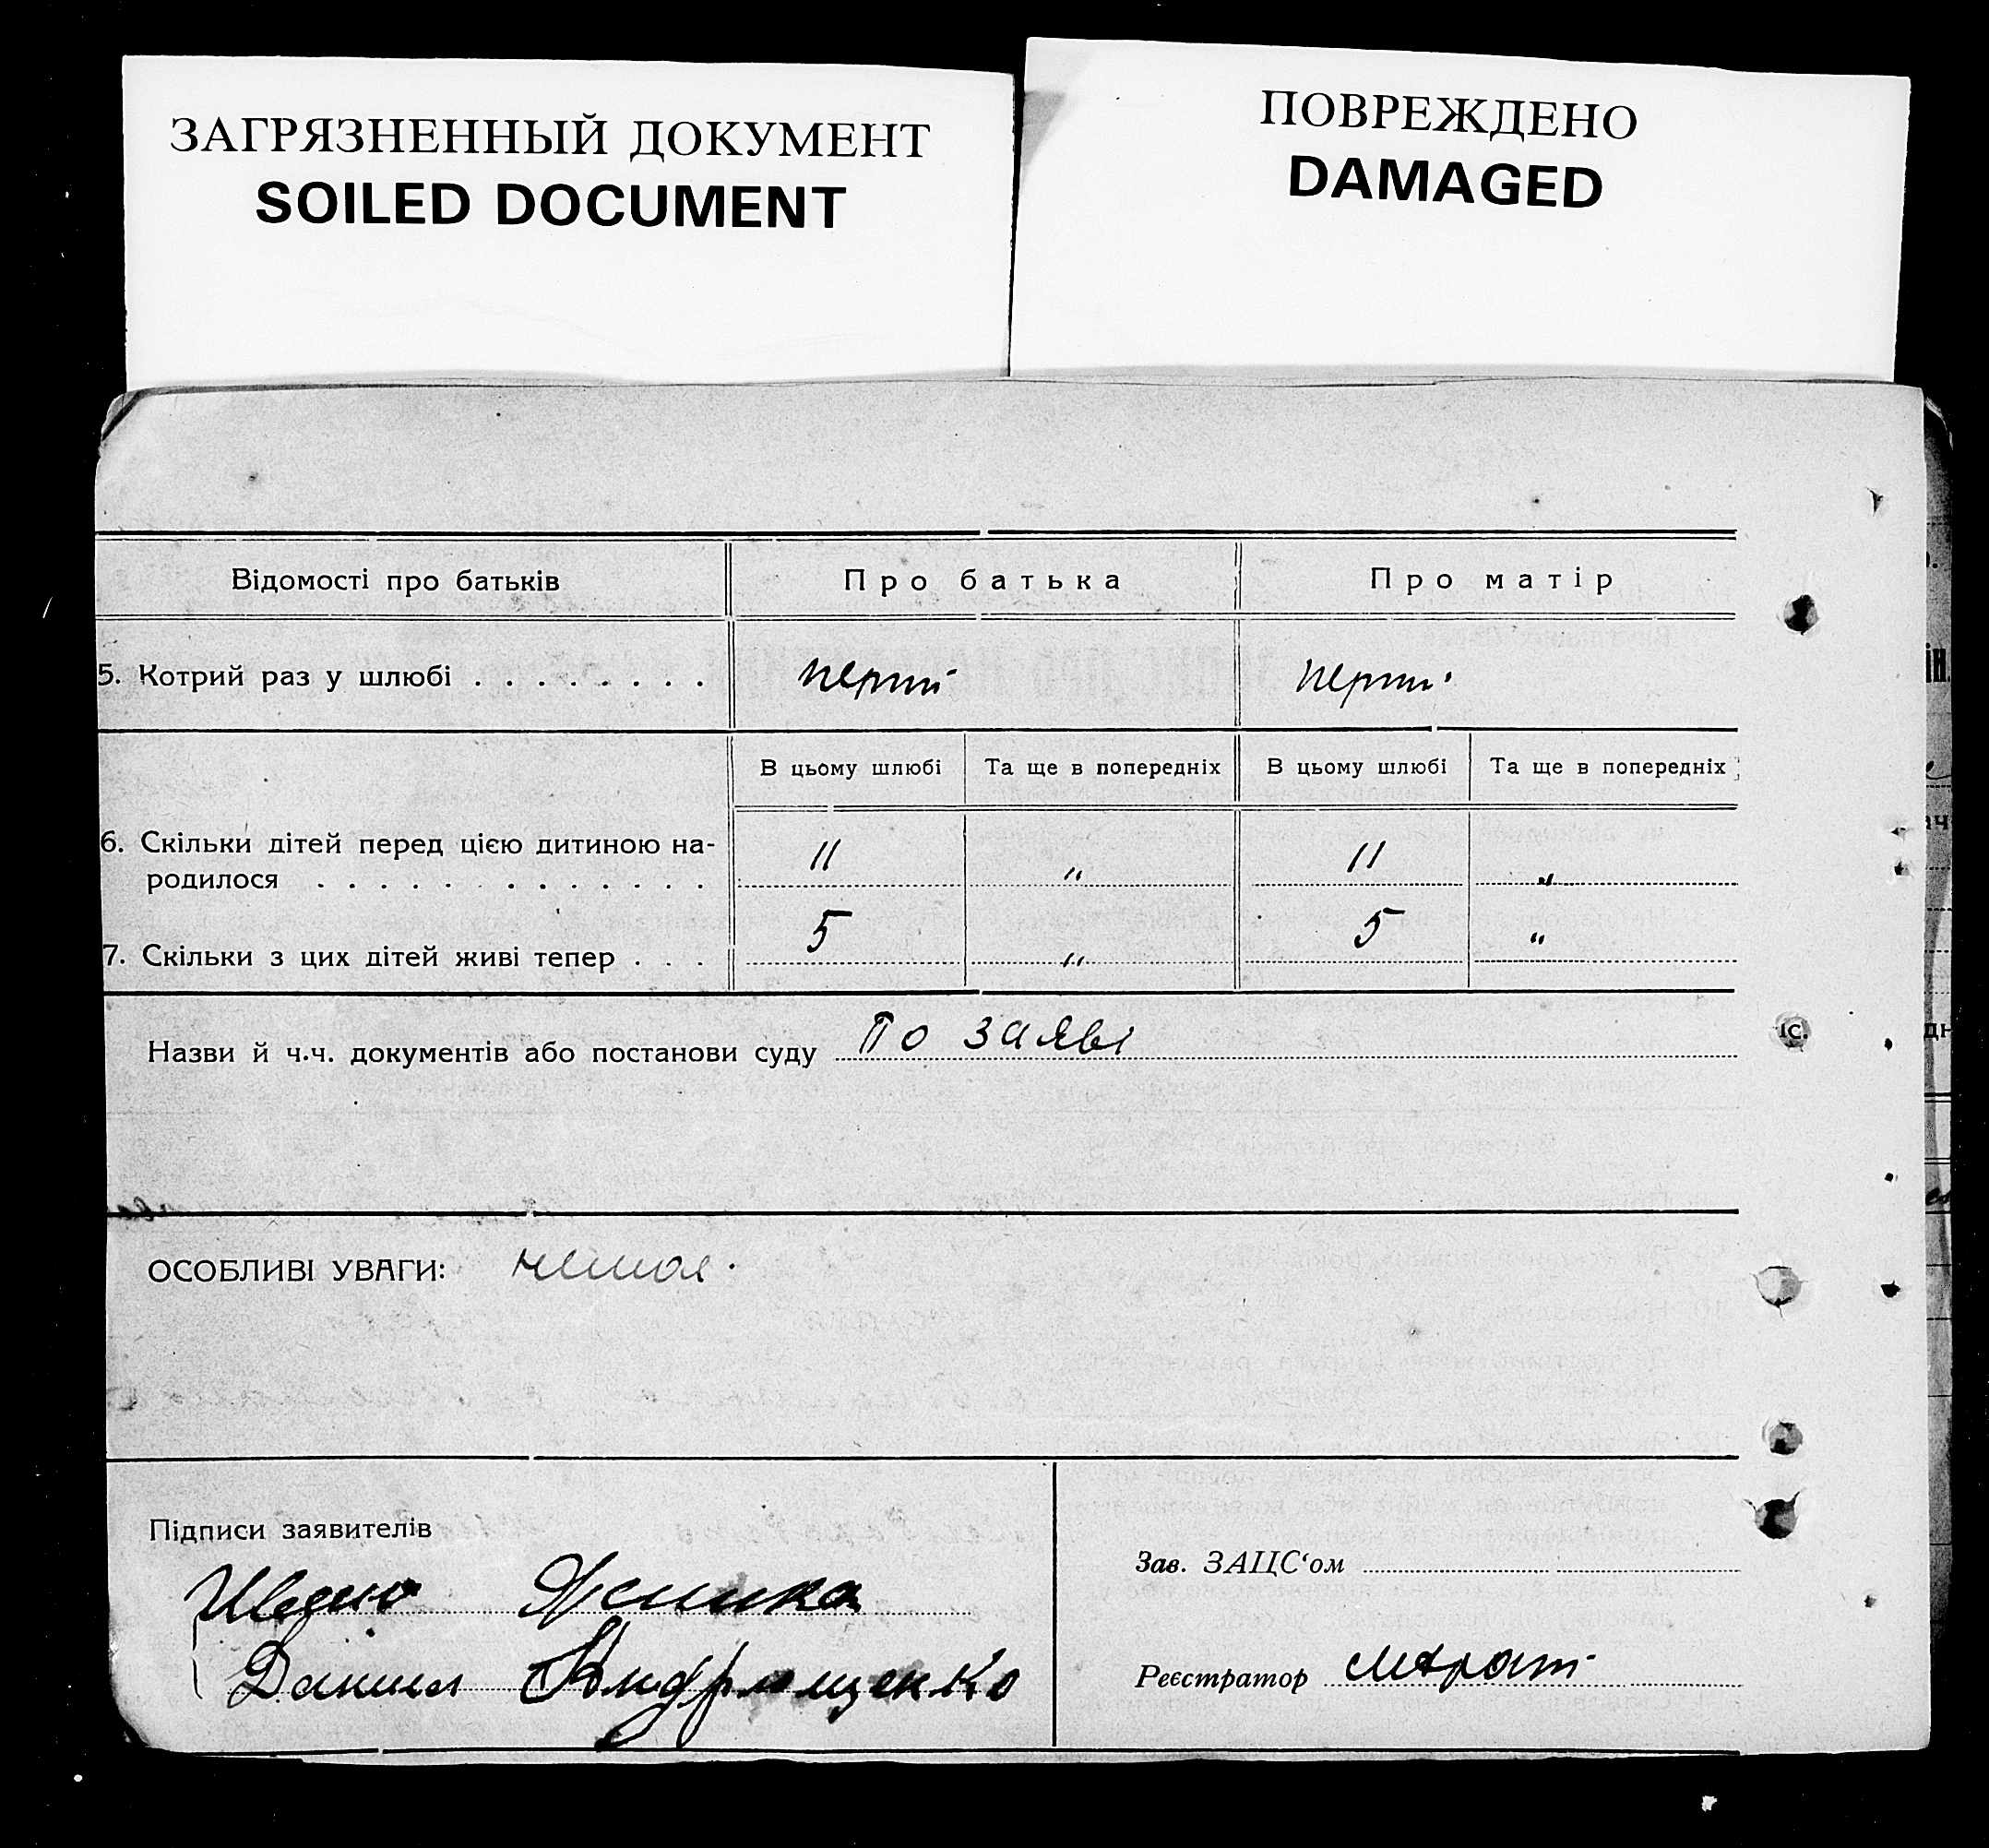 ЗАГРЯЗНЕННЫЙ ДОКУМЕНТ
SOILED DOCUMENT
ПОВРЕЖДЕНО
DAMAGED
Відомості про батьків Про батька Про матір
5. Котрий раз у шлюбі . . . . . . . . перший перший
В цьому шлюбі Та ще в попередніх В цьому шлюбі Та ще в попередніх
6. Скільки дітей перед цією дитиною на-
родилося . . . . . . . . . . . . . 11 " 11 "
7. Скільки з цих дітей живі тепер . . . 5 " 5 "
Назви й ч.ч. документів або постанови суду По заяві
іс.
ОСОБЛИВІ УВАГИ: немає.
Підписи заявителів
Данил Андрющенко
Зав. ЗАЦС'ом
Реєстратор